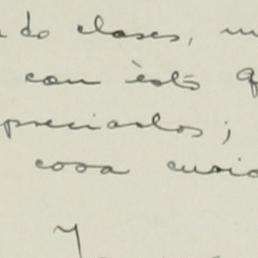 do clases,
con èsto
preciados;
cosa curio
Y